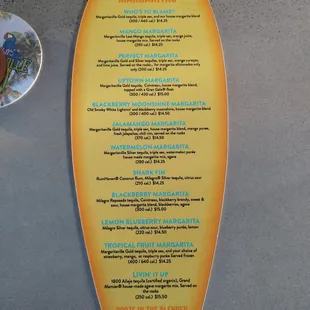 MARGARITAS
WHO'S TO BLAME?
Margaritaville Gold tequila, triple sec, and our house margarita blend
(300 / 640 cal.) $14.25
MANGO MARGARITA
Margaritaville Last Mango tequila, triple sec, orange juice,
house margarita mix. Served on the rocks
(290 cal.) $14.25
PERFECT MARGARITA
Margaritaville Gold and Silver tequilas, triple sec, orange curaçao,
and lime juice. Served on the rocks, for margarita aficionados only
only (200 cal.) $14.25
UPTOWN MARGARITA
Margaritaville Gold tequila, Cointreau, house margarita blend,
topped with a Gran Gala® float
(300 / 450 cal.) $15.00
BLACKBERRY MOONSHINE MARGARITA
Ole Smoky White Lightnin' and blackberry moonshine, house margarita blend
(300 / 400 cal.) $14.50
JALAMANGO MARGARITA
Margaritaville Gold tequila, triple sec, house margarita blend, mango puree,
fresh jalapeños, chili rim, served on the rocks
(370 cal.) $14.50
WATERMELON MARGARITA
Margaritaville Silver tequila, triple sec, watermelon purée
house made margarita mix, agave
(280 cal.) $14.25
SHARK FIN
RumHaven® Coconut Rum, Milagro® Silver tequila, citrus sour
(210 cal.) $14.25
BLACKBERRY MARGARITA
Milagro Reposado tequila, Cointreau, blackberry brandy, sweet &
sour, house margarita blend, blackberries, agave
(300 cal.) $15.00
LEMON BLUEBERRY MARGARITA
Milagro Silver tequila, citrus sour, blueberry purée, lemon
(220 cal.) $14.50
TROPICAL FRUIT MARGARITA
Margaritaville Gold tequila, triple sec, and your choice of
strawberry, mango, or raspberry purée Served frozen.
(400 / 640 cal.) $14.25
LIVIN' IT UP
1800 Añejo tequila (certified organic), Grand
Marnier® house made agave margarita mix. Served on
the rocks
(250 cal.) $15.50
BOATS IN THE BLENDER